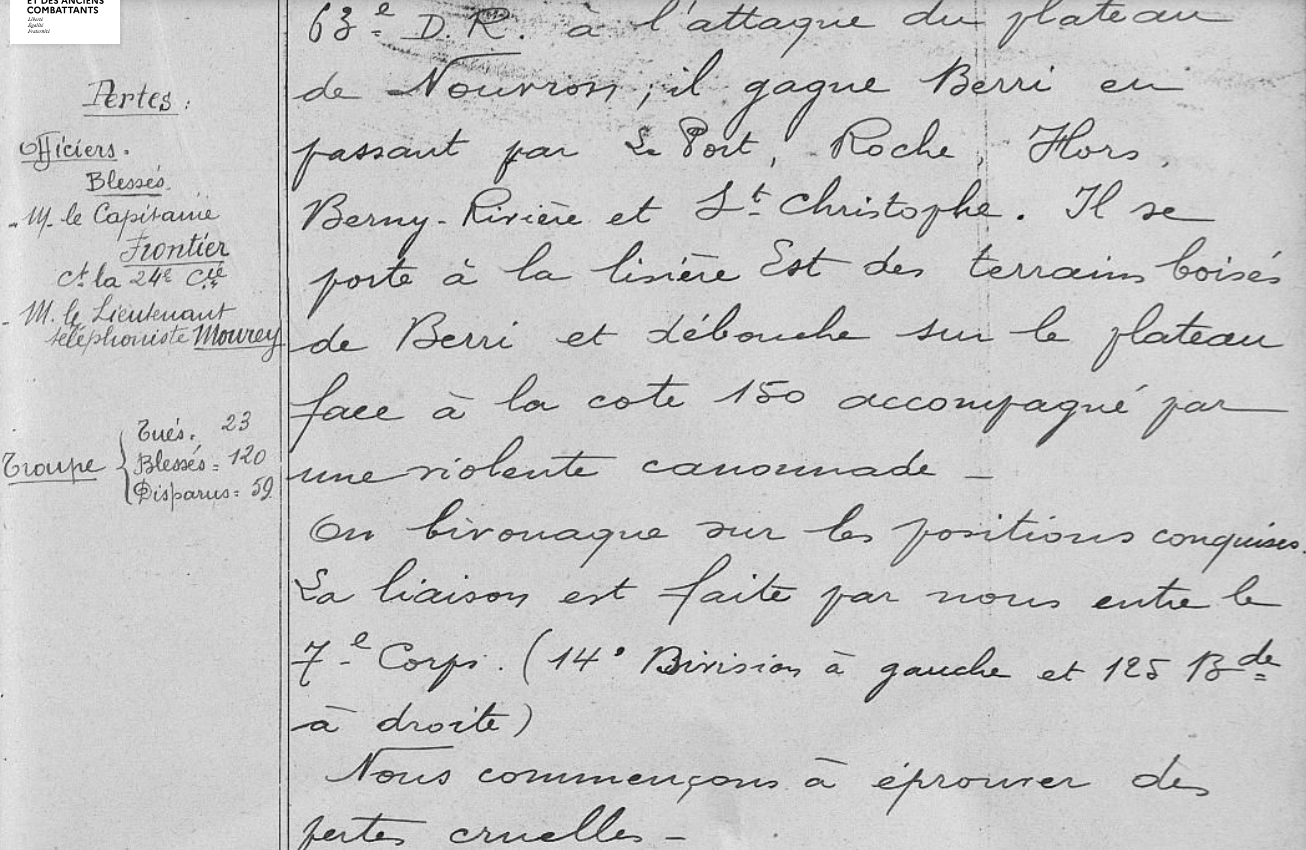 ET DES ANCIENS
COMBATTANTS
Liberté
Égalité
Fraternité
Pertes :
Officiers.
Blessés.
- M. le Capitaine
Frontier
Ct la 24e Cie
- M. le Lieutenant
téléphoniste Mourey
Troupe
Tués. 23
Blessés = 120
Disparus = 59
63e D.R. à l'attaque du plateau
de Nouvron, il gagne Berri en
passant par Le Port, Roche, Hors,
Berny-Rivière et St Christophe. Il se
porte à la lisière Est des terrains boisés
de Berri et débouche sur le plateau
face à la cote 150 accompagné par
une violente canonnade _
On bivouaque sur les positions conquises.
La liaison est faite par nous entre le
7e Corps. (14e Division à gauche et 125 Bde
à droite)
Nous commençons à éprouver des
pertes cruelles _